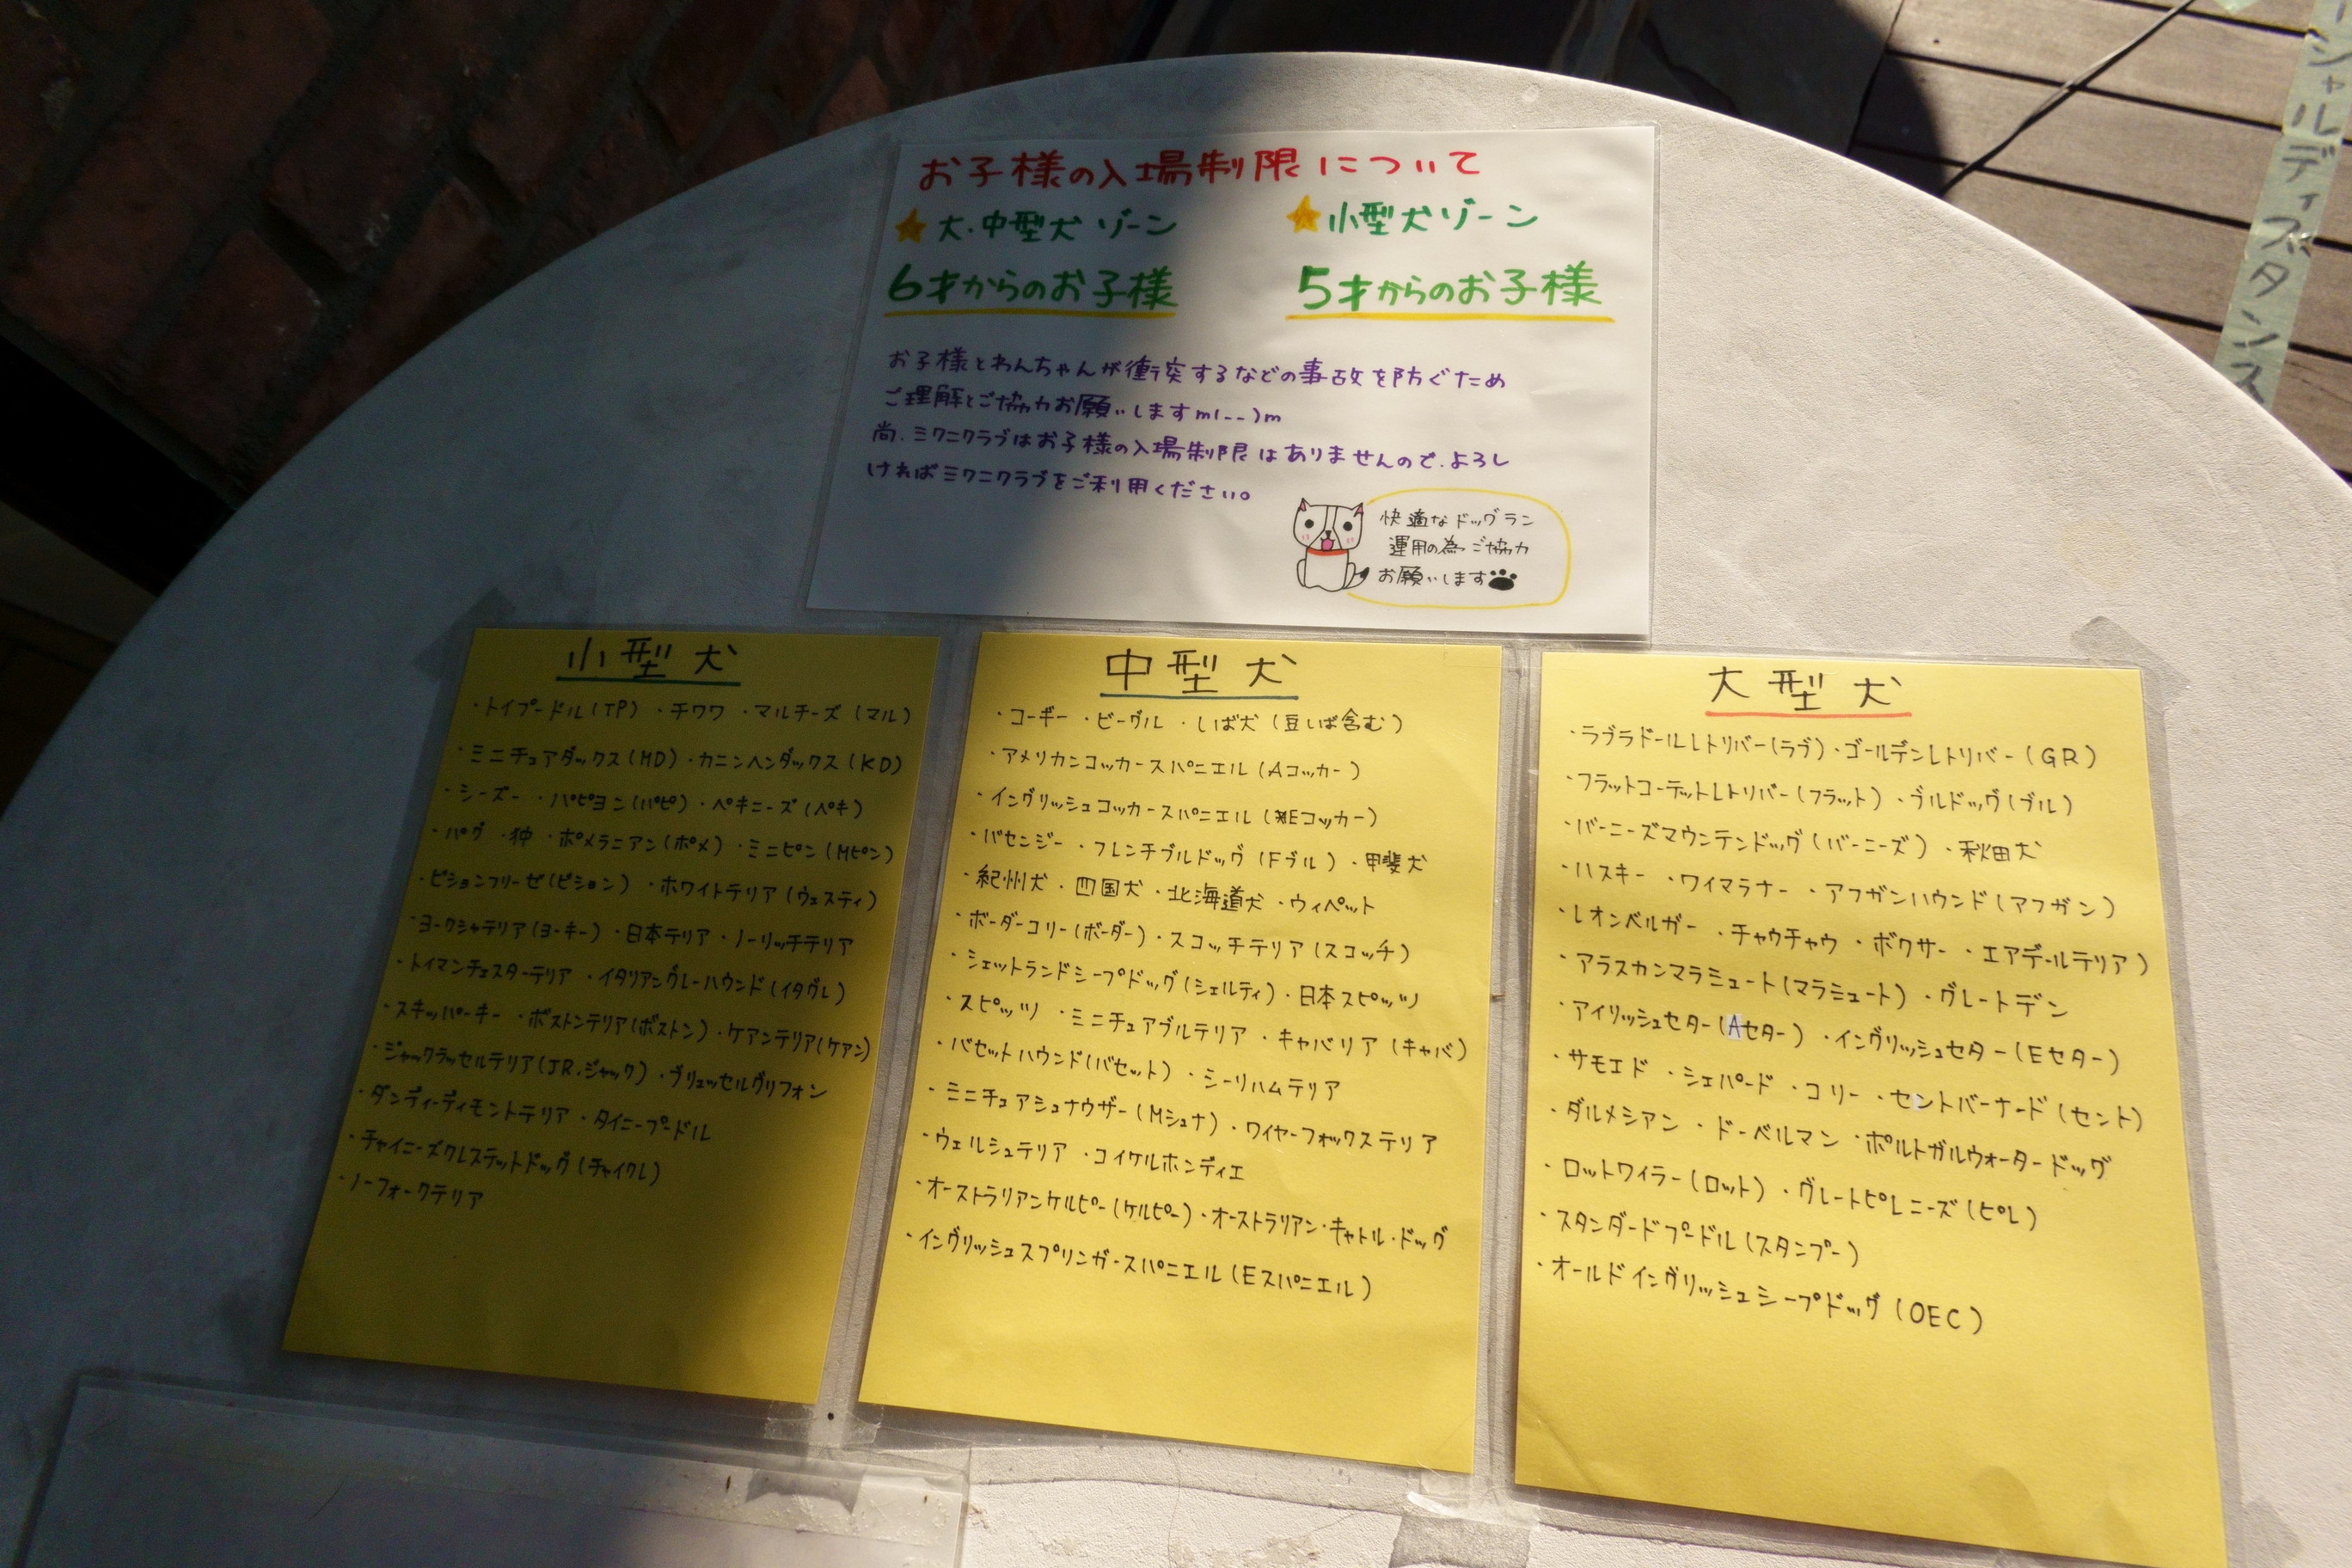 お子様の入場制限について
★大・中型犬ゾーン
6才からのお子様
★小型犬ゾーン
5才からのお子様
お子様とわんちゃんが衝突するなどの事故を防ぐため
ご理解とご協力お願いしますm(--)m
尚、ミクニクラブはお子様の入場制限はありませんので、よろし
ければミクニクラブをご利用ください。
快適なドッグラン
運用の為ご協力
お願いします
小型犬
・トイプードル(TP) ・チワワ ・マルチーズ(マル)
・ミニチュアダックス(MD)・カニンヘンダックス(KD)
・シーズー ・パピヨン(パピ)・ペキニーズ(ペキ)
・パグ ・狆 ・ポメラニアン(ポメ)・ミニピン(Mピン)
・ビションフリーゼ(ビション) ・ホワイトテリア(ウェスティ)
・ヨークシャテリア(ヨーキー)・日本テリア・ノーリッチテリア
・トイマンチェスターテリア ・イタリアングレーハウンド(イタグレ)
・スキッパーキー ・ボストンテリア(ボストン)・ケアンテリア(ケアン)
・ジャックラッセルテリア(JR.ジャック)・ブリュッセルグリフォン
・ダンディーディモントテリア ・タイニープードル
・チャイニーズクレステットドッグ(チャイクレ)
・ノーフォークテリア
中型犬
・コーギー ・ビーグル ・しば犬(豆しば含む)
・アメリカンコッカースパニエル(Aコッカー)
・イングリッシュコッカースパニエル(Eコッカー)
・バセンジー ・フレンチブルドッグ(Fブル) ・甲斐犬
・紀州犬 ・四国犬 ・北海道犬 ・ウィペット
・ボーダーコリー(ボーダー)・スコッチテリア(スコッチ)
・シェットランドシープドッグ(シェルティ)・日本スピッツ
・スピッツ ・ミニチュアブルテリア ・キャバリア(キャバ)
・バセットハウンド(バセット) ・シーリハムテリア
・ミニチュアシュナウザー(Mシュナ)・ワイヤーフォックステリア
・ウェルシュテリア ・コイケルホンディエ
・オーストラリアンケルピー(ケルピー)・オーストラリアン・キャトル・ドッグ
・イングリッシュスプリンガースパニエル(Eスパニエル)
大型犬
・ラブラドールレトリバー(ラブ)・ゴールデンレトリバー(GR)
・フラットコーテットレトリバー(フラット)・ブルドッグ(ブル)
・バーニーズマウンテンドッグ(バーニーズ) ・秋田犬
・ハスキー ・ワイマラナー ・アフガンハウンド(アフガン)
・レオンベルガー ・チャウチャウ ・ボクサー ・エアデールテリア)
・アラスカンマラミュート(マラミュート)・グレートデン
・アイリッシュセター(Aセター) ・イングリッシュセター(Eセター)
・サモエド ・シェパード ・コリー ・セントバーナード(セント)
・ダルメシアン ・ドーベルマン ・ポルトガルウォータードッグ
・ロットワイラー(ロット)・グレートピレニーズ(ピレ)
・スタンダードプードル(スタンプー)
・オールドイングリッシュシープドッグ(OEC)
シャルディスタンス